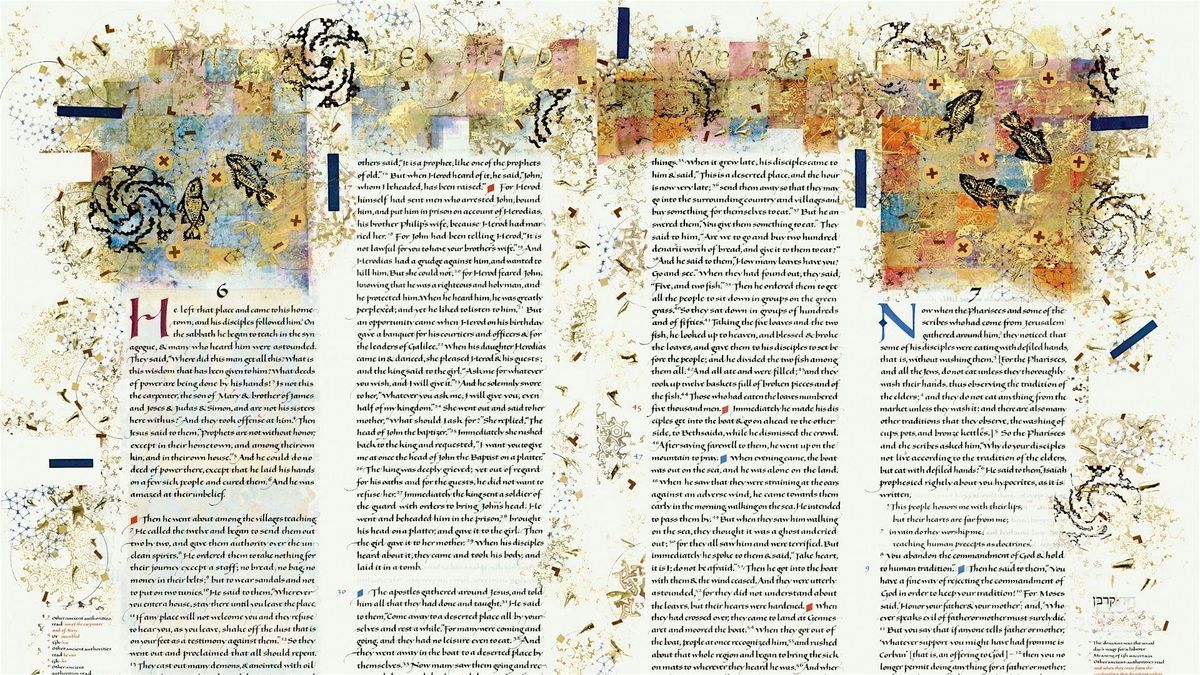 THEY ALL ATE AND WERE FILLED
6
He left that place and came to his home
town, and his disciples followed him. On
the sabbath he began to teach in the syn
agogue, & many who heard him were astounded.
They said, "Where did this man get all this? What is
this wisdom that has been given to him? What deeds
of power are being done by his hands! ³ Is not this
the carpenter, the son of Mary & brother of James
and Joses & Judas & Simon, and are not his sisters
here with us?" And they took offense at him. ⁴ Then
Jesus said to them, "Prophets are not without honor,
except in their hometown, and among their own
kin, and in their own house." ⁵ And he could do no
deed of power there, except that he laid his hands
on a few sick people and cured them. ⁶ And he was
amazed at their unbelief.
Then he went about among the villages teaching.
⁷ He called the twelve and began to send them out
two by two, and gave them authority over the un
clean spirits. ⁸ He ordered them to take nothing for
their journey except a staff; no bread, no bag, no
money in their belts; ⁹ but to wear sandals and not
to put on two tunics. ¹⁰ He said to them, "Wherever
you enter a house, stay there until you leave the place.
¹¹ If any place will not welcome you and they refuse
to hear you, as you leave, shake off the dust that is
on your feet as a testimony against them." ¹² So they
went out and proclaimed that all should repent.
¹³ They cast out many demons, & anointed with oil
Other ancient authorities
read
Or
Gk
Other ancient authorities
read
Gk
Other ancient
authorities read
others said, "It is a prophet, like one of the prophets
of old." ¹⁶ But when Herod heard of it, he said, "John,
17
whom I beheaded, has been raised." For Herod
himself had sent men who arrested John, bound
him, and put him in prison on account of Herodias,
his brother Philip's wife, because Herod had mar
ried her. ¹⁸ For John had been telling Herod, "It is
not lawful for you to have your brother's wife." ¹⁹ And
Herodias had a grudge against him, and wanted to
kill him. But she could not, ²⁰ for Herod feared John,
knowing that he was a righteous and holy man, and
he protected him. When he heard him, he was greatly
perplexed; and yet he liked to listen to him. ²¹ But
an opportunity came when Herod on his birthday
gave a banquet for his courtiers and officers & for
the leaders of Galilee. ²² When his daughter Herodias
came in & danced, she pleased Herod & his guests;
and the king said to the girl, "Ask me for whatever
you wish, and I will give it." ²³ And he solemnly swore
to her, "Whatever you ask me, I will give you, even
half of my kingdom." ²⁴ She went out and said to her
mother, "What should I ask for?" She replied, "The
head of John the baptizer." ²⁵ Immediately she rushed
back to the king and requested, "I want you to give
me at once the head of John the Baptist on a platter."
²⁶ The king was deeply grieved; yet out of regard
for his oaths and for the guests, he did not want to
refuse her. ²⁷ Immediately the king sent a soldier of
the guard with orders to bring John's head. He
went and beheaded him in the prison, ²⁸ brought
his head on a platter, and gave it to the girl. Then
the girl gave it to her mother. ²⁹ When his disciples
heard about it, they came and took his body, and
laid it in a tomb.
30
The apostles gathered around Jesus, and told
him all that they had done and taught. ³¹ He said
to them, "Come away to a deserted place all by your-
selves and rest a while." For many were coming and
going, and they had no leisure even to eat. ³² And
they went away in the boat to a deserted place by
themselves. ³³ Now many saw them going and rec-
things. ³⁵ When it grew late, his disciples came to
him & said, "This is a deserted place, and the hour
is now very late; ³⁶ send them away so that they may
go into the surrounding country and villages and
buy something for themselves to eat." ³⁷ But he an
swered them, "You give them something to eat." They
said to him, "Are we to go and buy two hundred
denarii worth of bread, and give it to them to eat?"
³⁸ And he said to them, "How many loaves have you?
Go and see." When they had found out, they said,
"Five, and two fish." ³⁹ Then he ordered them to get
all the people to sit down in groups on the green
grass. ⁴⁰ So they sat down in groups of hundreds
and of fifties. ⁴¹ Taking the five loaves and the two
fish, he looked up to heaven, and blessed & broke
the loaves, and gave them to his disciples to set be
fore the people; and he divided the two fish among
them all. ⁴² And all ate and were filled; ⁴³ and they
took up twelve baskets full of broken pieces and of
the fish. ⁴⁴ Those who had eaten the loaves numbered
45
five thousand men. Immediately he made his dis
ciples get into the boat & go on ahead to the other
side, to Bethsaida, while he dismissed the crowd.
⁴⁶ After saying farewell to them, he went up on the
47
mountain to pray. When evening came, the boat
was out on the sea, and he was alone on the land.
⁴⁸ When he saw that they were straining at the oars
against an adverse wind, he came towards them
early in the morning, walking on the sea. He intended
to pass them by. ⁴⁹ But when they saw him walking
on the sea, they thought it was a ghost and cried
out; ⁵⁰ for they all saw him and were terrified. But
immediately he spoke to them & said, "Take heart,
it is I; do not be afraid." ⁵¹ Then he got into the boat
with them & the wind ceased. And they were utterly
astounded, ⁵² for they did not understand about
53
the loaves, but their hearts were hardened. When
they had crossed over, they came to land at Gennes
aret and moored the boat. ⁵⁴ When they got out of
the boat, people at once recognized him, ⁵⁵ and rushed
about that whole region and began to bring the sick
on mats to wherever they heard he was. ⁵⁶ And wher
7
Now when the Pharisees and some of the
scribes who had come from Jerusalem
gathered around him, ² they noticed that
some of his disciples were eating with defiled hands,
that is, without washing them. ³ (For the Pharisees,
and all the Jews, do not eat unless they thoroughly
wash their hands, thus observing the tradition of
the elders; ⁴ and they do not eat anything from the
market unless they wash it; and there are also many
other traditions that they observe, the washing of
cups, pots, and bronze kettles.) ⁵ So the Pharisees
and the scribes asked him, "Why do your disciples
not live according to the tradition of the elders,
but eat with defiled hands?" ⁶ He said to them, "Isaiah
prophesied rightly about you hypocrites, as it is
written,
'This people honors me with their lips,
but their hearts are far from me;
⁷ in vain do they worship me,
teaching human precepts as doctrines.'
⁸ You abandon the commandment of God & hold
9
to human tradition." Then he said to them, "You
have a fine way of rejecting the commandment of
God in order to keep your tradition! ¹⁰ For Moses
said, 'Honor your father & your mother'; and, 'Who
ever speaks evil of father or mother must surely die.'
¹¹ But you say that if anyone tells father or mother,
'Whatever support you might have had from me is
Corban' (that is, an offering to God)— ¹² then you no
longer permit doing anything for a father or mother,
קרבן
The denarius was the usual
day's wage for a laborer
Meaning of Gk uncertain
Other ancient authorities read